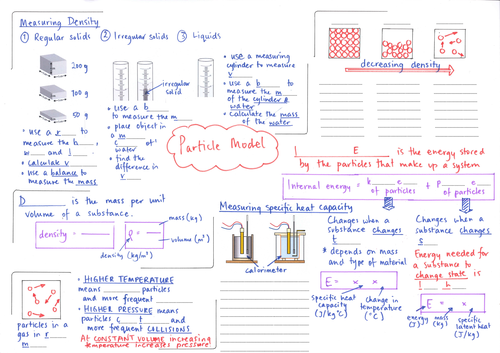 Measuring Density
① Regular solids
② Irregular solids
③ Liquids
200 g
100 g
50 g
• use a r___ to
measure the b___,
w___ and l___.
• calculate v___
• use a balance to
measure the mass
irregular
solid
• use a b___
to measure the m___
• place object in
a m___
c___ of
water
• find the
difference in
v___
• use a measuring
cylinder to measure
v___
• use a b___ to
measure the m___
of the cylinder &
water
• calculate the mass
of the water
decreasing density
Particle Model
I___ E___ is the energy stored
by the particles that make up a system
Internal energy = k___ e___ of particles + p___ e___ of particles
D___ is the mass per unit
volume of a substance.
density = ___
ρ = ___
mass (kg)
volume (m³)
density (kg/m³)
Measuring specific heat capacity
calorimeter
Changes when a
substance changes
t___
* depends on mass
and type of material
E = x x
specific heat
capacity
(J/kg°C)
change in
temperature
(°C)
Changes when a
substance changes
s___
Energy needed for
a substance to
change state is
l___ h___
E = x
energy
(J)
mass
(kg)
specific
latent heat
(J/kg)
particles in a
gas in r___
m___
• HIGHER TEMPERATURE
means ___ particles
and more frequent ___
• HIGHER PRESSURE means
particles c___ t___ and
more frequent COLLISIONS
At CONSTANT VOLUME increasing
temperature increases pressure!